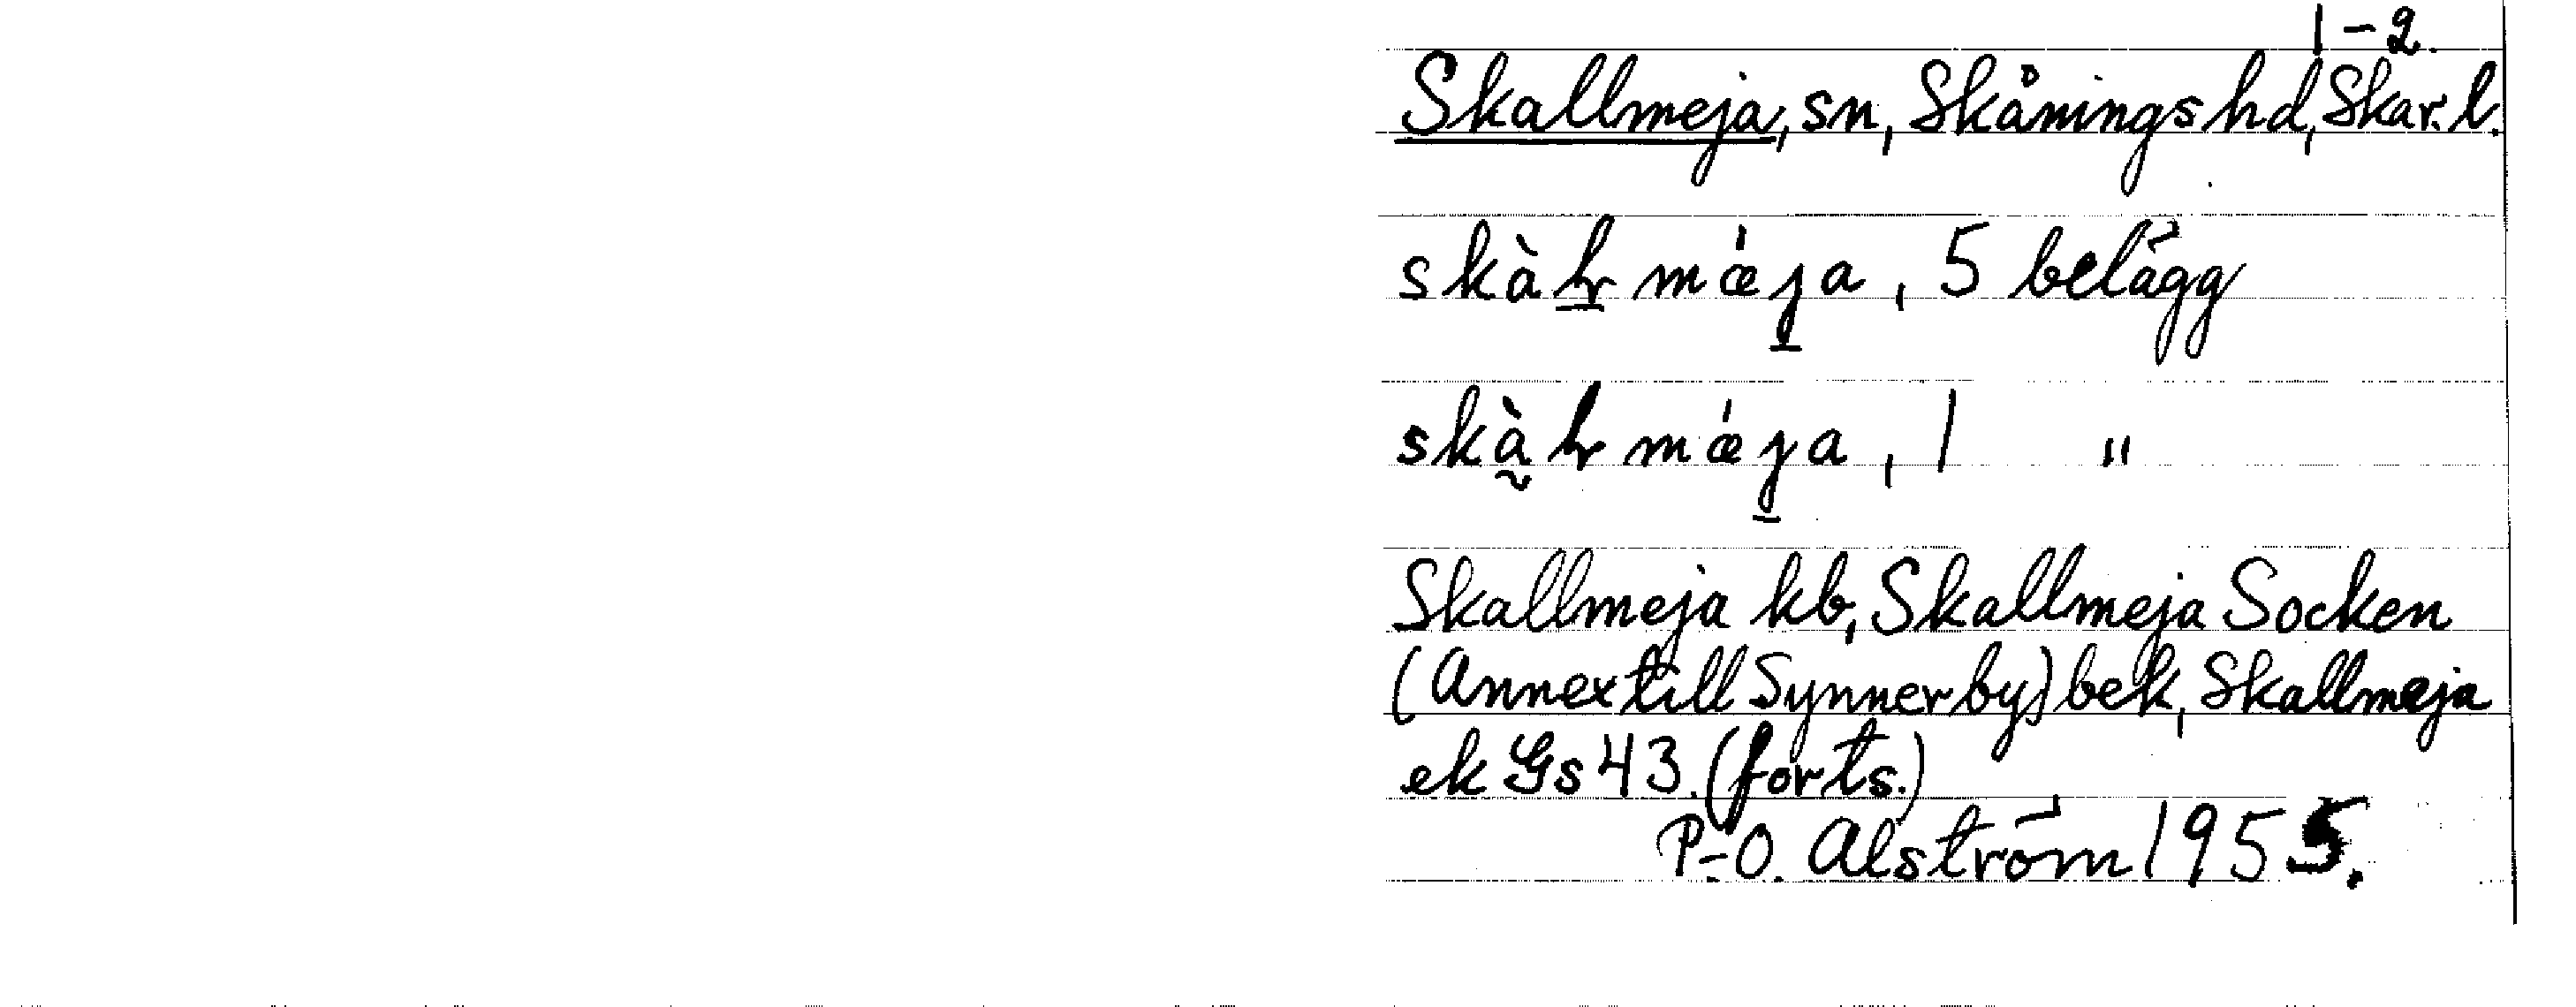 1-2.
Skallmeja, sn, Skånings hd, Skar. l.
skàł̱ mǽja̱, 5 belägg
skà̰ł mǽja̱, 1 "
Skallmeja kb, Skallmeja Socken
(Annex till Synnerby) bek, Skallmeja
ek Gs 43. (forts.)
P-O. Alström 1955.